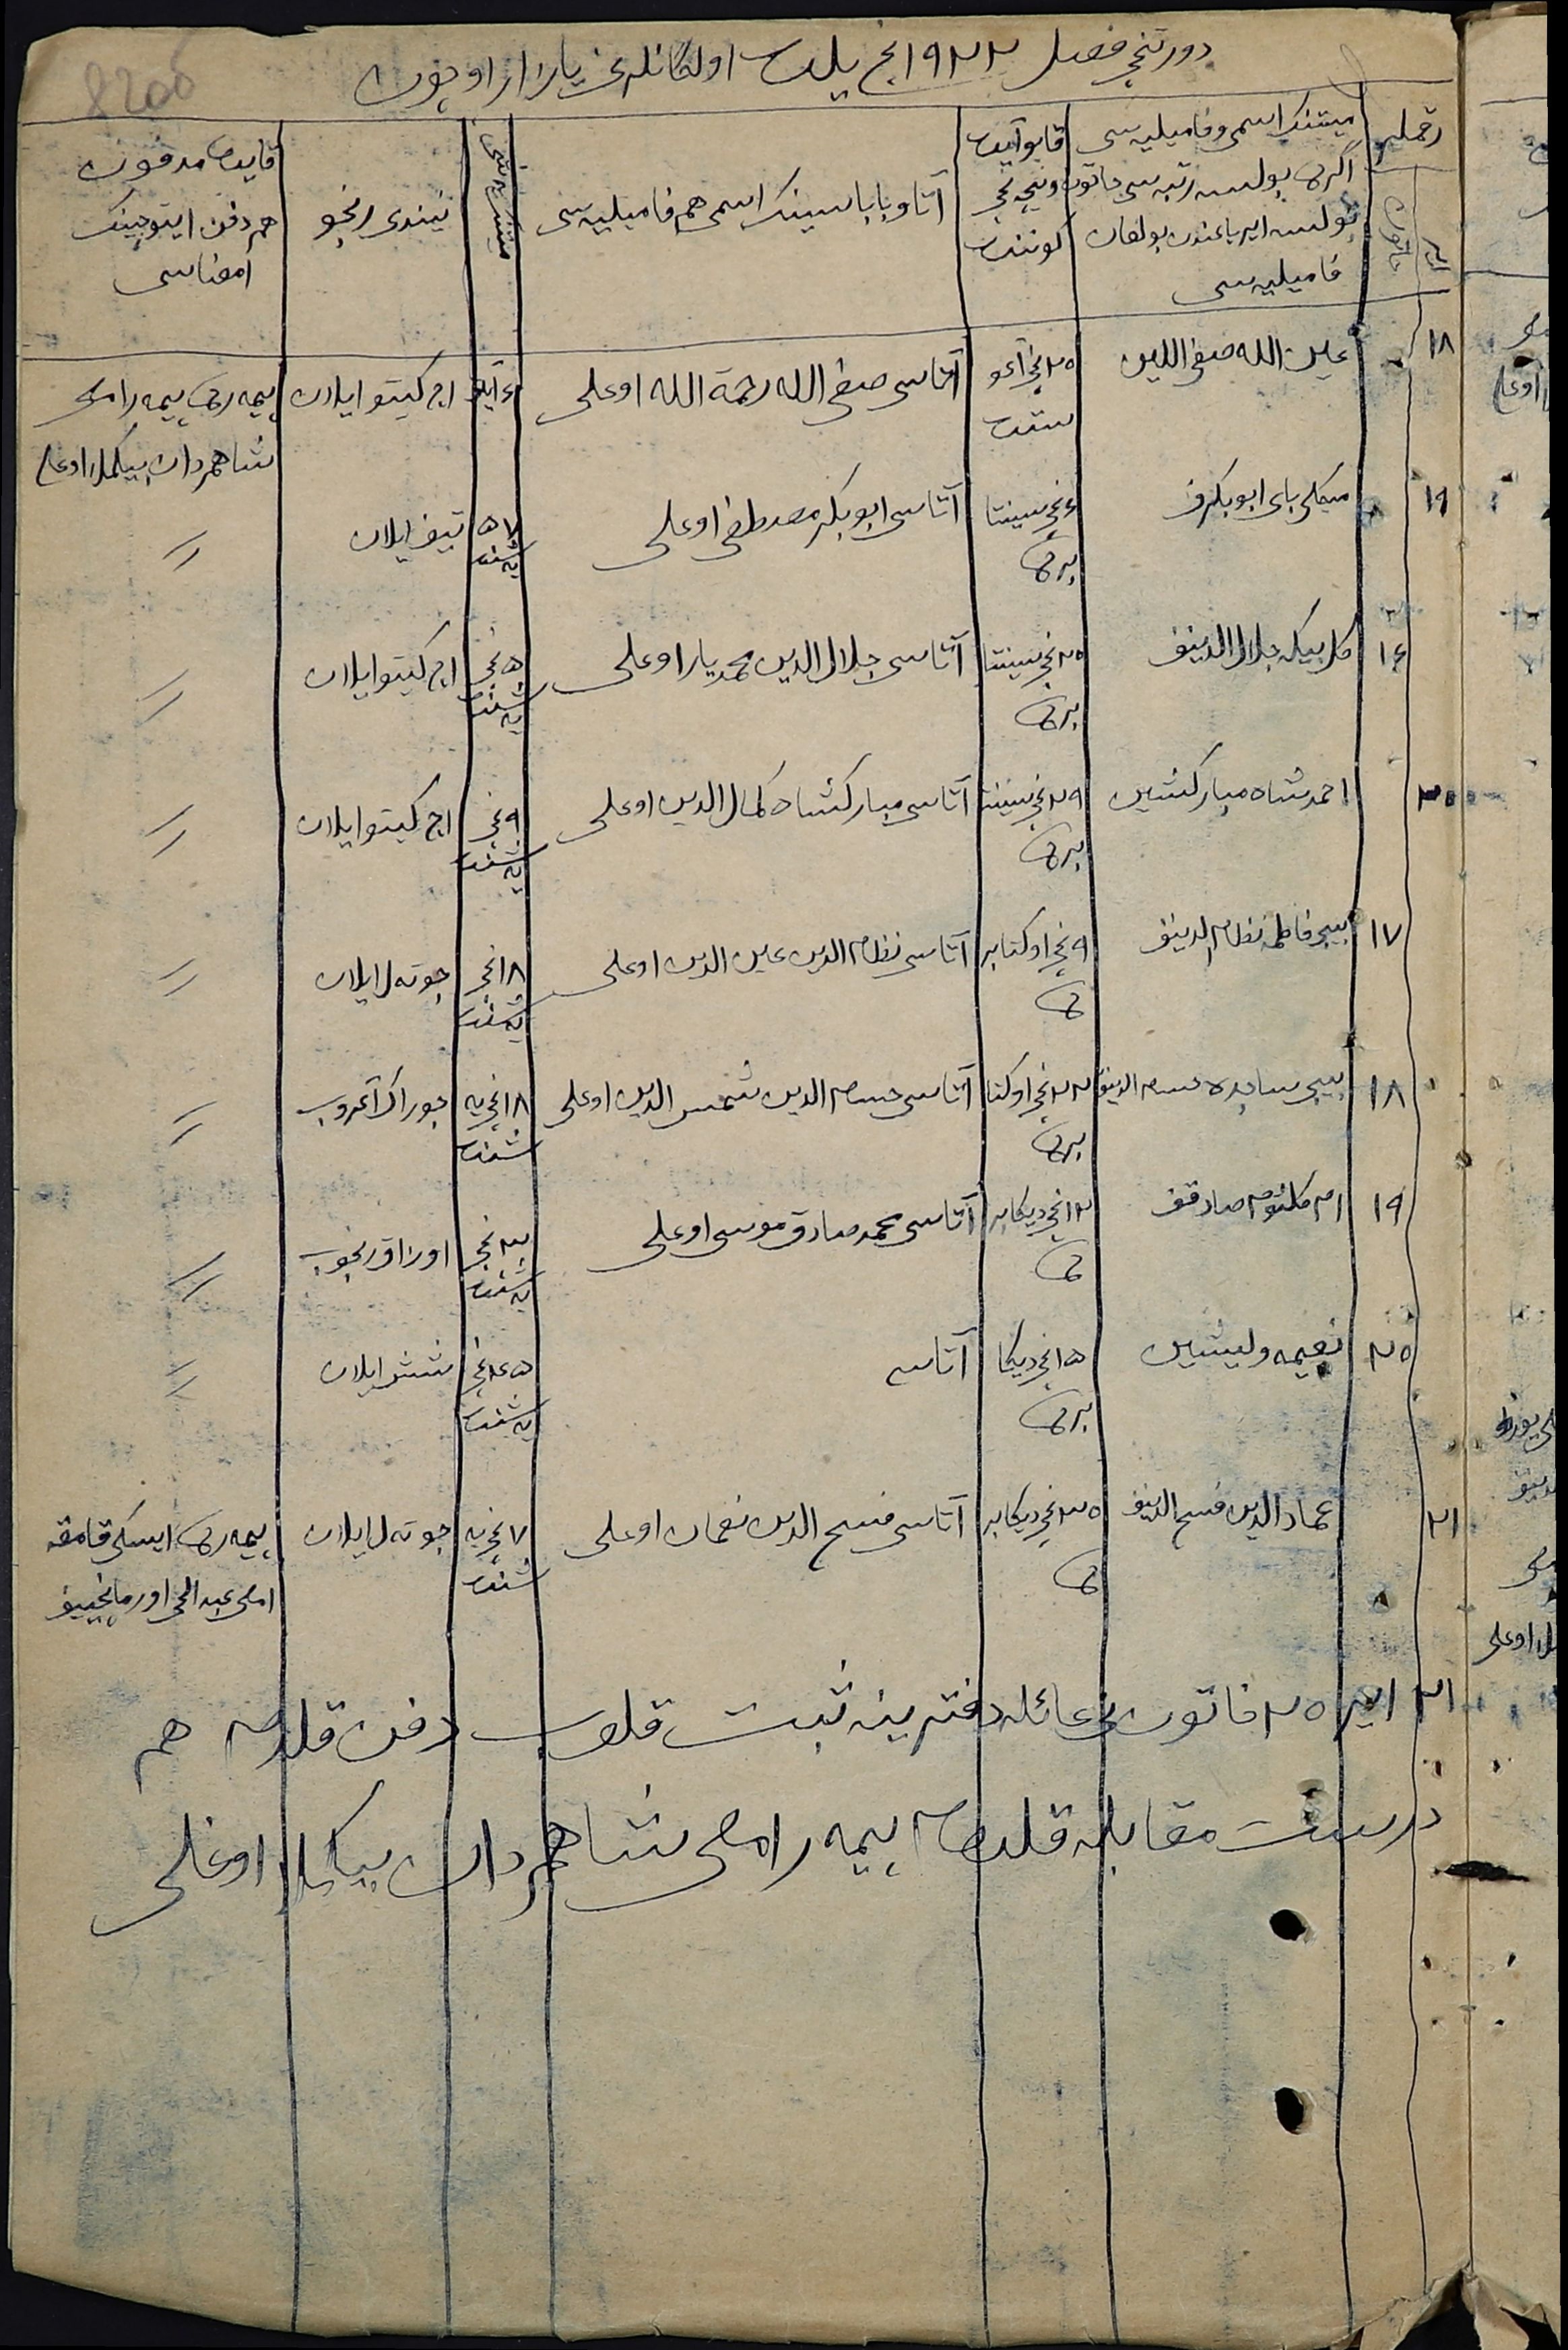 دورتنچی فصل ۱۹۲۲ انچی یلدا اولگانلرنی یازار اوچون
رقملر
ایر
خاتون
میتنڭ اسمی و فامیلیه‌سی
اگر ده بولسه رتبه‌سی خاتون
بولسه ایر یاغندن بولغان
فامیلیه‌سی
قایو آیدا
ونیچه‌نچی
کوننده
آتا و باباسینڭ اسمی هم فامیلییه‌سی
نیندی رنجو
قایدا مدفون
هم دفن ایتوچینڭ
امضاسی
۱۸
عین الله صفی اللین
۲۵ نچی آغو
ستدا
آتاسی صفی الله رحمة الله اوغلی
۶ آیلق
اچ کیتو ایلان
ییمه‌ده ییمه رامی
شاهمردان بیکملا اوغلی
۱۹
میکلی بای ابوبکرف
۶ نچی سینتا
برده
آتاسی ابوبکر مصطفی اوغلی
۵۷
یه‌شنده
تیف ایلان
〃
۱۶
گل بیکه جلال الدینف
۲۵ نچی سینتا
برده
آتاسی جلال الدین محمدیار اوغلی
۵ نچی
یه‌شنده
اچ کیتو ایلان
〃
۲۰
احمدشاه مبارکشین
۲۹ نچی سینتا
برده
آتاسی مبارکشاه کمال الدین اوغلی
۹ نچی
یه‌شنده
اچ کیتو ایلان
〃
۱۷
بیبی فاطمه نظام الدینف
۹ نچی اوکتابر
ده
آتاسی نظام الدین عین الدین اوغلی
۱۸ نچی
یه‌شنده
چوته‌ل ایلان
〃
۱۸
بیبی ساجده حسام الدینف
۲۲ نچی اوکتا
برده
آتاسی حسام الدین شمس الدین اوغلی
۱۸ نچی یه
شنده
یوراک آغروب
〃
۱۹
ام کلثوم صادقف
۱۲ نچی دیکابر
ده
آتاسی محمد صادق موسی اوغلی
۳ نچی
یه‌شنده
اوزاق رنجوب
〃
۲۰
نعیمه ولیشین
۱۵ نچی دیکا
برده
آتاسی
۶۵ نچی
یه‌شنده
شش ایلان
〃
۲۱
عماد الدین فسح الدینف
۲۵ نچی دیکابر
ده
آتاسی فسح الدین نعمان اوغلی
۷ نچی یه
شنده
چوته‌ل ایلان
ییمه‌ده ایسکی قامقه
امامی عبدالحی اورمانچییف
۲۱ ایر ۲۰ خاتون نی عائله دفترینه ثبت قلوب دفن قلدم هم
درست مقابله قلدم ییمه رامی شاهمردان بیکملا اوغلی